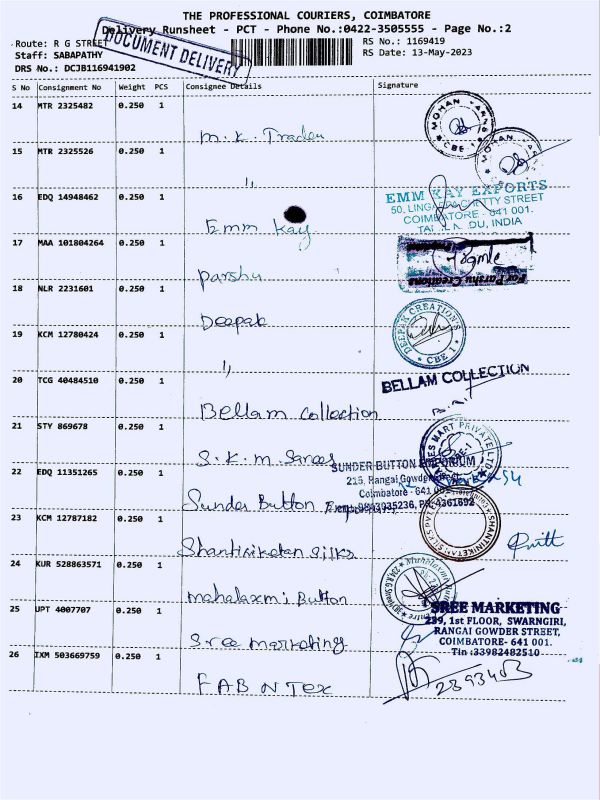 THE PROFESSIONAL COURIERS, COIMBATORE
Delivery Runsheet - PCT - Phone No.:0422-3505555 - Page No.:2
DOCUMENT DELIVERY
Route: R G STREET
RS No.: 1169419
Staff: SABAPATHY
RS Date: 13-May-2023
DRS No.: DCJB116941902
S No Consignment No Weight PCS Consignee Details Signature
14 MTR 2325482 0.250 1
M. K. Traders
MOHAN
CBE 1
15 MTR 2325526 0.250 1
"
MOHAN
16 EDQ 14948462 0.250 1
Emm Kay
EMM KAY EXPORTS
50, LINGA CHETTY STREET
COIMBATORE - 641 001.
INDIA
17 MAA 101804264 0.250 1
Parshu
For Parshu Creations
18 NLR 2231601 0.250 1
Deepak
DEEPAK CREATION'S
CBE 1
19 KCM 12780424 0.250 1
"
20 TCG 40484510 0.250 1
Bellam Collection
BELLAM COLLECTION
21 STY 869678 0.250 1
S. K. M. Sarees
MART PRIVATE LTD
22 EDQ 11351265 0.250 1
Sunder Button Emporium
SUNDER BUTTON EMPORIUM
215, Rangai Gowder Street,
Coimbatore - 641 001
9843935236, PH: 4361692
23 KCM 12787182 0.250 1
Shantiniketan Silks
SHANTINIKETAN SILKS
24 KUR 528863571 0.250 1
Mahalaxmi Button
Mahalaxmi
25 UPT 4007707 0.250 1
Sree Marketing
SREE MARKETING
239, 1st FLOOR, SWARNGIRI,
RANGAI GOWDER STREET,
COIMBATORE- 641 001.
Tin :33982482510
26 IXM 503669759 0.250 1
FAB N TEX